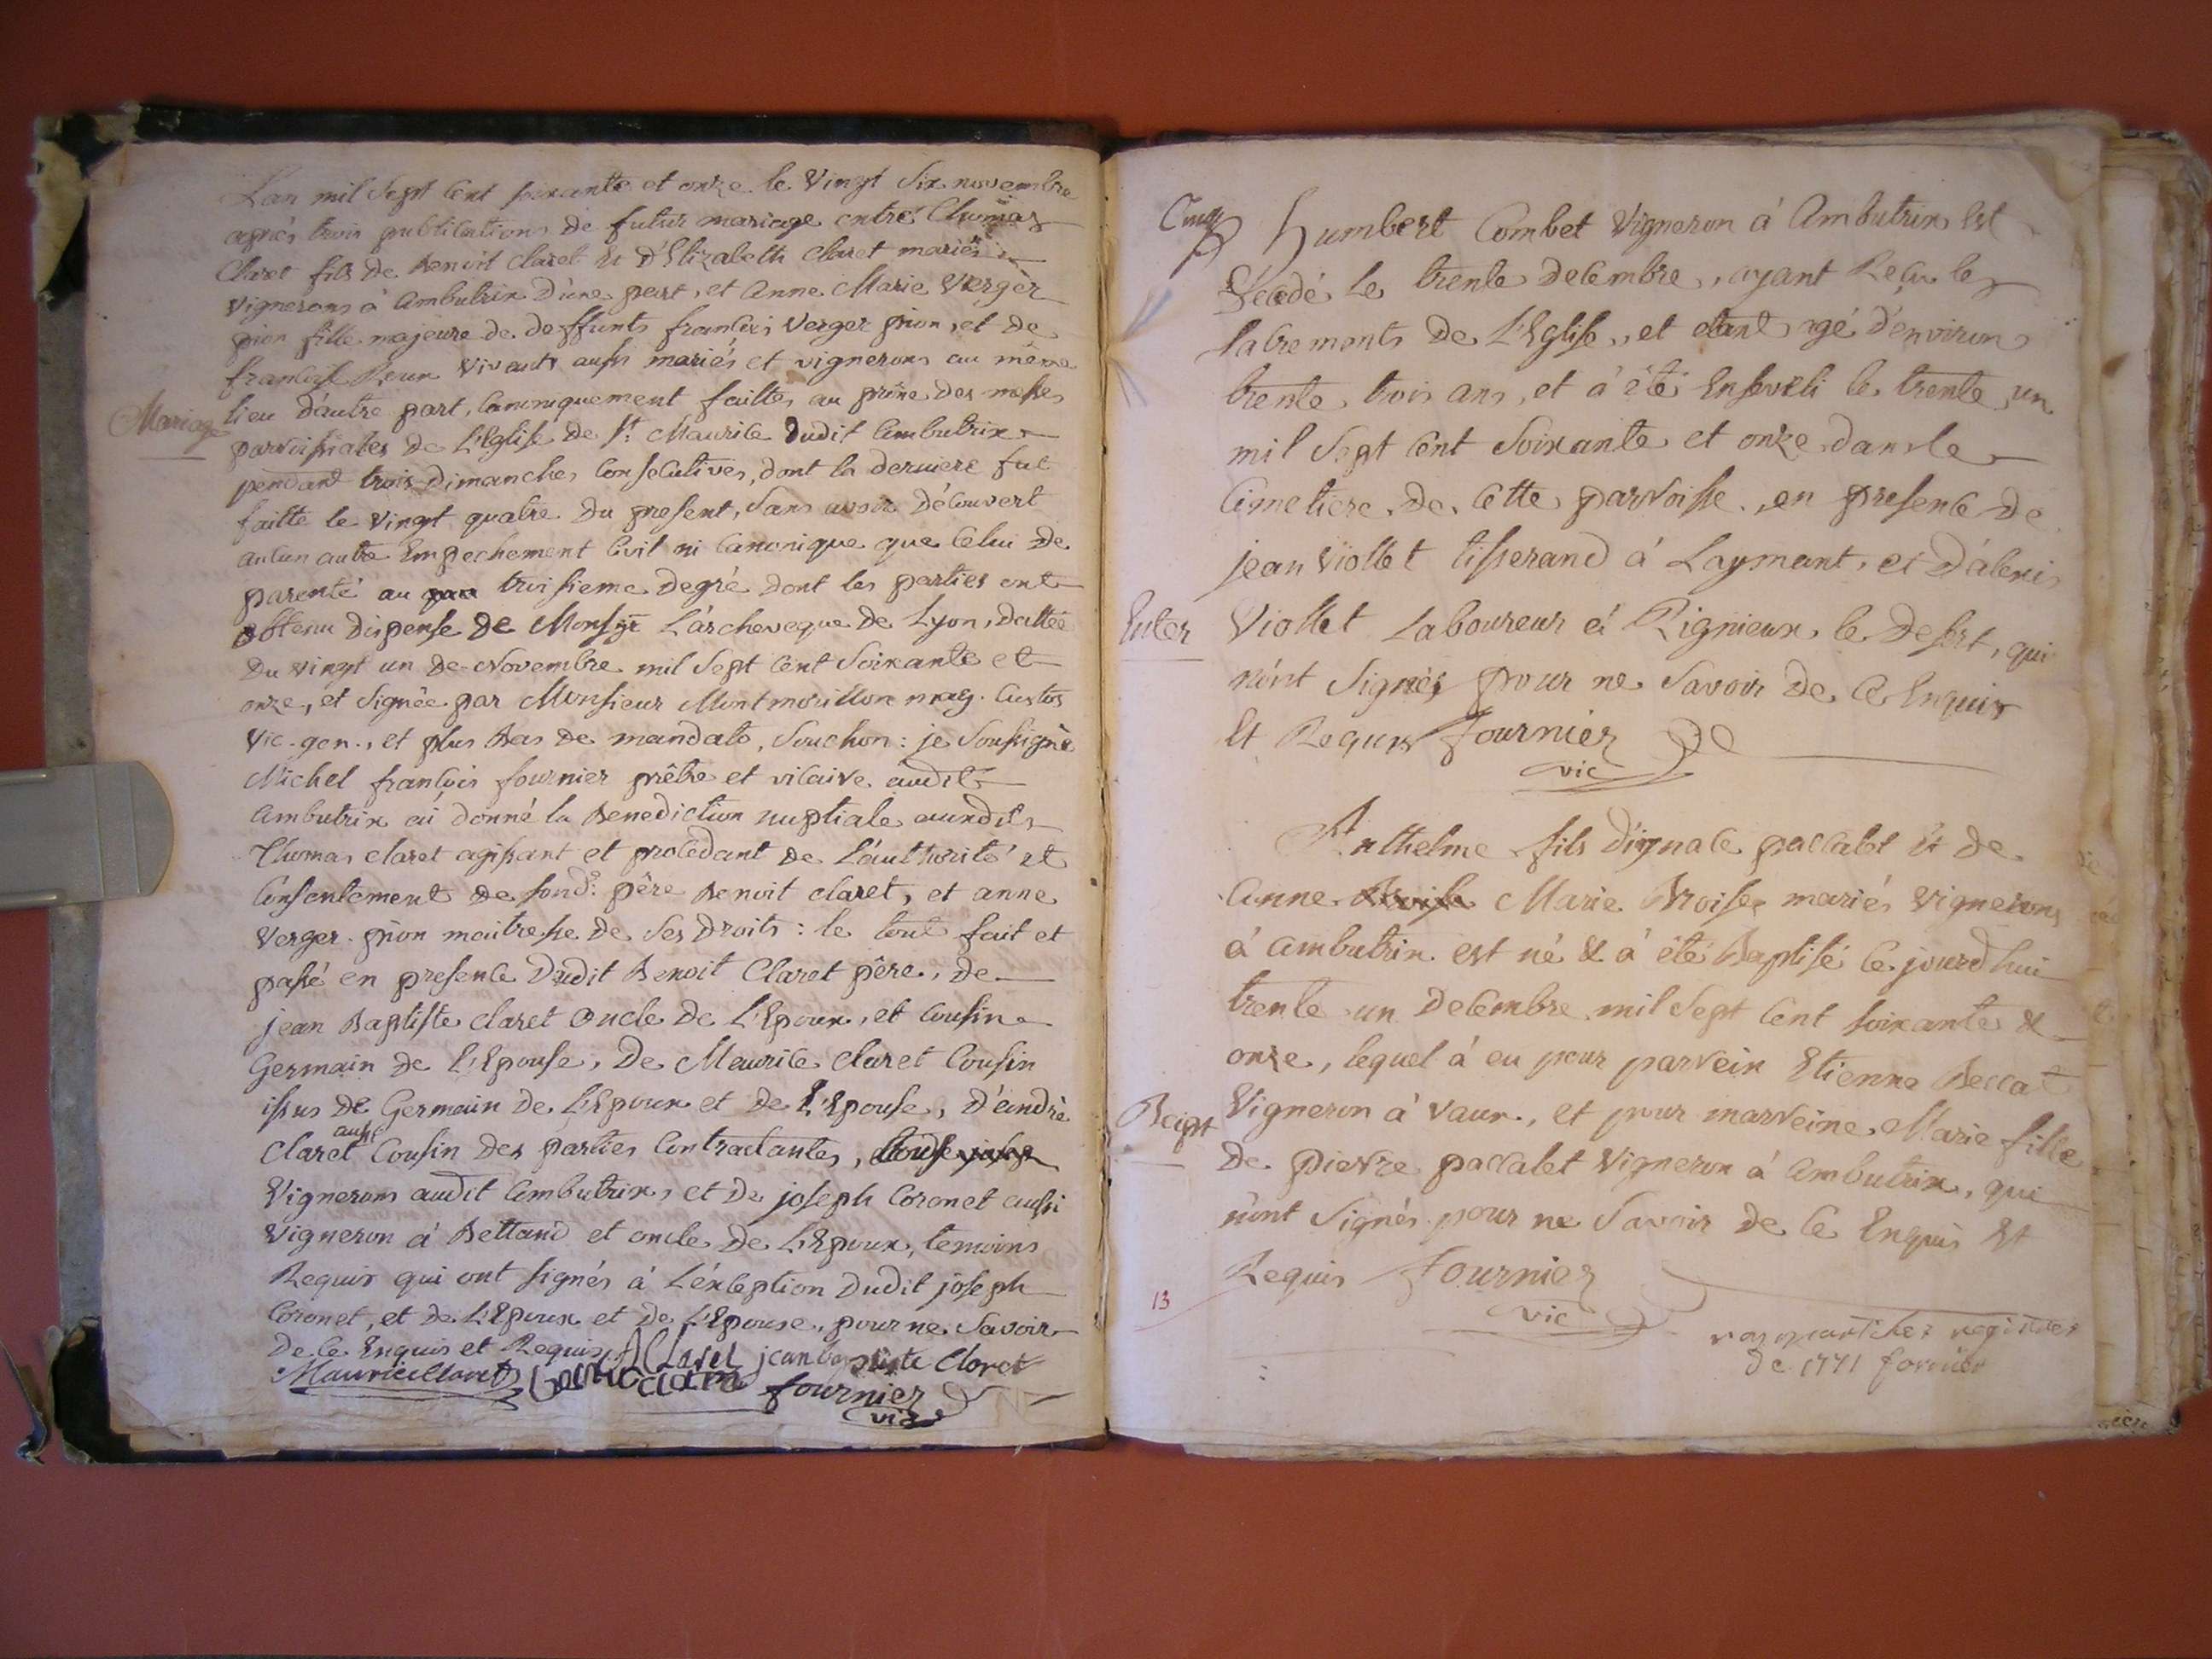 Lan mil Sept Cent soixante et onze le Vingt Six novembre
après trois publications de futur mariage entre Thomas
Claret fils de Benoit Claret Et d'Elizabeth Claret mariés
Vignerons à Ambutrix d'une part, et Anne Marie Verger
pion fille majeure de deffunts francois Verger pion, et de
francoise vivants aussi mariés et vignerons au même
Mariage
lieu d'autre part, Canoniquement faittes au prône des messes
parroissiales de L'Eglise de St. Maurice dudit Ambutrix
pendant trois Dimanches Consecutives, dont la derniere fut
faitte le Vingt quatre du present, Sans avoir découvert
aucun autre Empechement Civil ni Canonique que Celui de
parenté au troisieme degré dont les parties ont
obtenu dispense de Monsgr L'archeveque de Lyon, dattée
du vingt un de Novembre mil Sept Cent Soixante et
onze, et Signée par Monsieur Montmorillon mag. Custos
Vic. gen., et plus Bas de mandato, Souchon : je Soussigné
Michel françois fournier prêtre et vicaire audit
Ambutrix ai donné la Benediction nuptiale auxdits
Thomas claret agissant et procedant de L'authorité et
Consentement de sond. père Benoit claret, et anne
Verger pion maitresse de Ses droits : le tout fait et
passé en presence Dudit Benoit Claret père, de
jean Baptiste claret oncle de L'Epoux, et Cousin
Germain de L'Epouse, De Maurice Claret Cousin
issus de Germain de L'Epoux et de L'Epouse, d'andré
aussi
Claret Cousin des parties Contractantes,
Vignerons audit Ambutrix, et de joseph Coronet aussi
Vigneron à Bettand et oncle de L'Epoux, temoins
Requis qui ont signés à L'exception dudit joseph
Coronet, et de L'Epoux et de L'Epouse, pour ne Savoir
de Ce Enquis et Requis A Claret jean baptiste Claret
Maurice Claret fournier
vic
Humbert Combet Vigneron à Ambutrix Est
décédé le trente decembre, ayant Reçu les
Sacrements de L'Eglise, et etant agé d'environ
trente trois ans, et à été Enseveli le trente un
mil Sept Cent Soixante et onze dans le
Cimetiere de Cette parroisse, en presence de
jean Viollet tisserand à Laymant, et d'alexis
Enter
Viollet Laboureur à Rignieux le Desert, qui
n'ont Signés pour ne Savoir de Ce Enquis
Et Requis fournier
vic
Anthelme fils d'ignace paccalet Et de
Anne Marie Broise mariés Vignerons
à Ambutrix est né & à été Baptisé Ce jourd'hui
trente un decembre mil Sept Cent soixante &
onze, lequel à eu pour parrein Etienne Beccat
Bapt
Vigneron à Vaux, et pour marreine Marie fille
de pierre paccalet Vigneron à Ambutrix, qui
n'ont Signés pour ne Savoir de Ce Enquis Et
Requis fournier
vic
13
de 1771